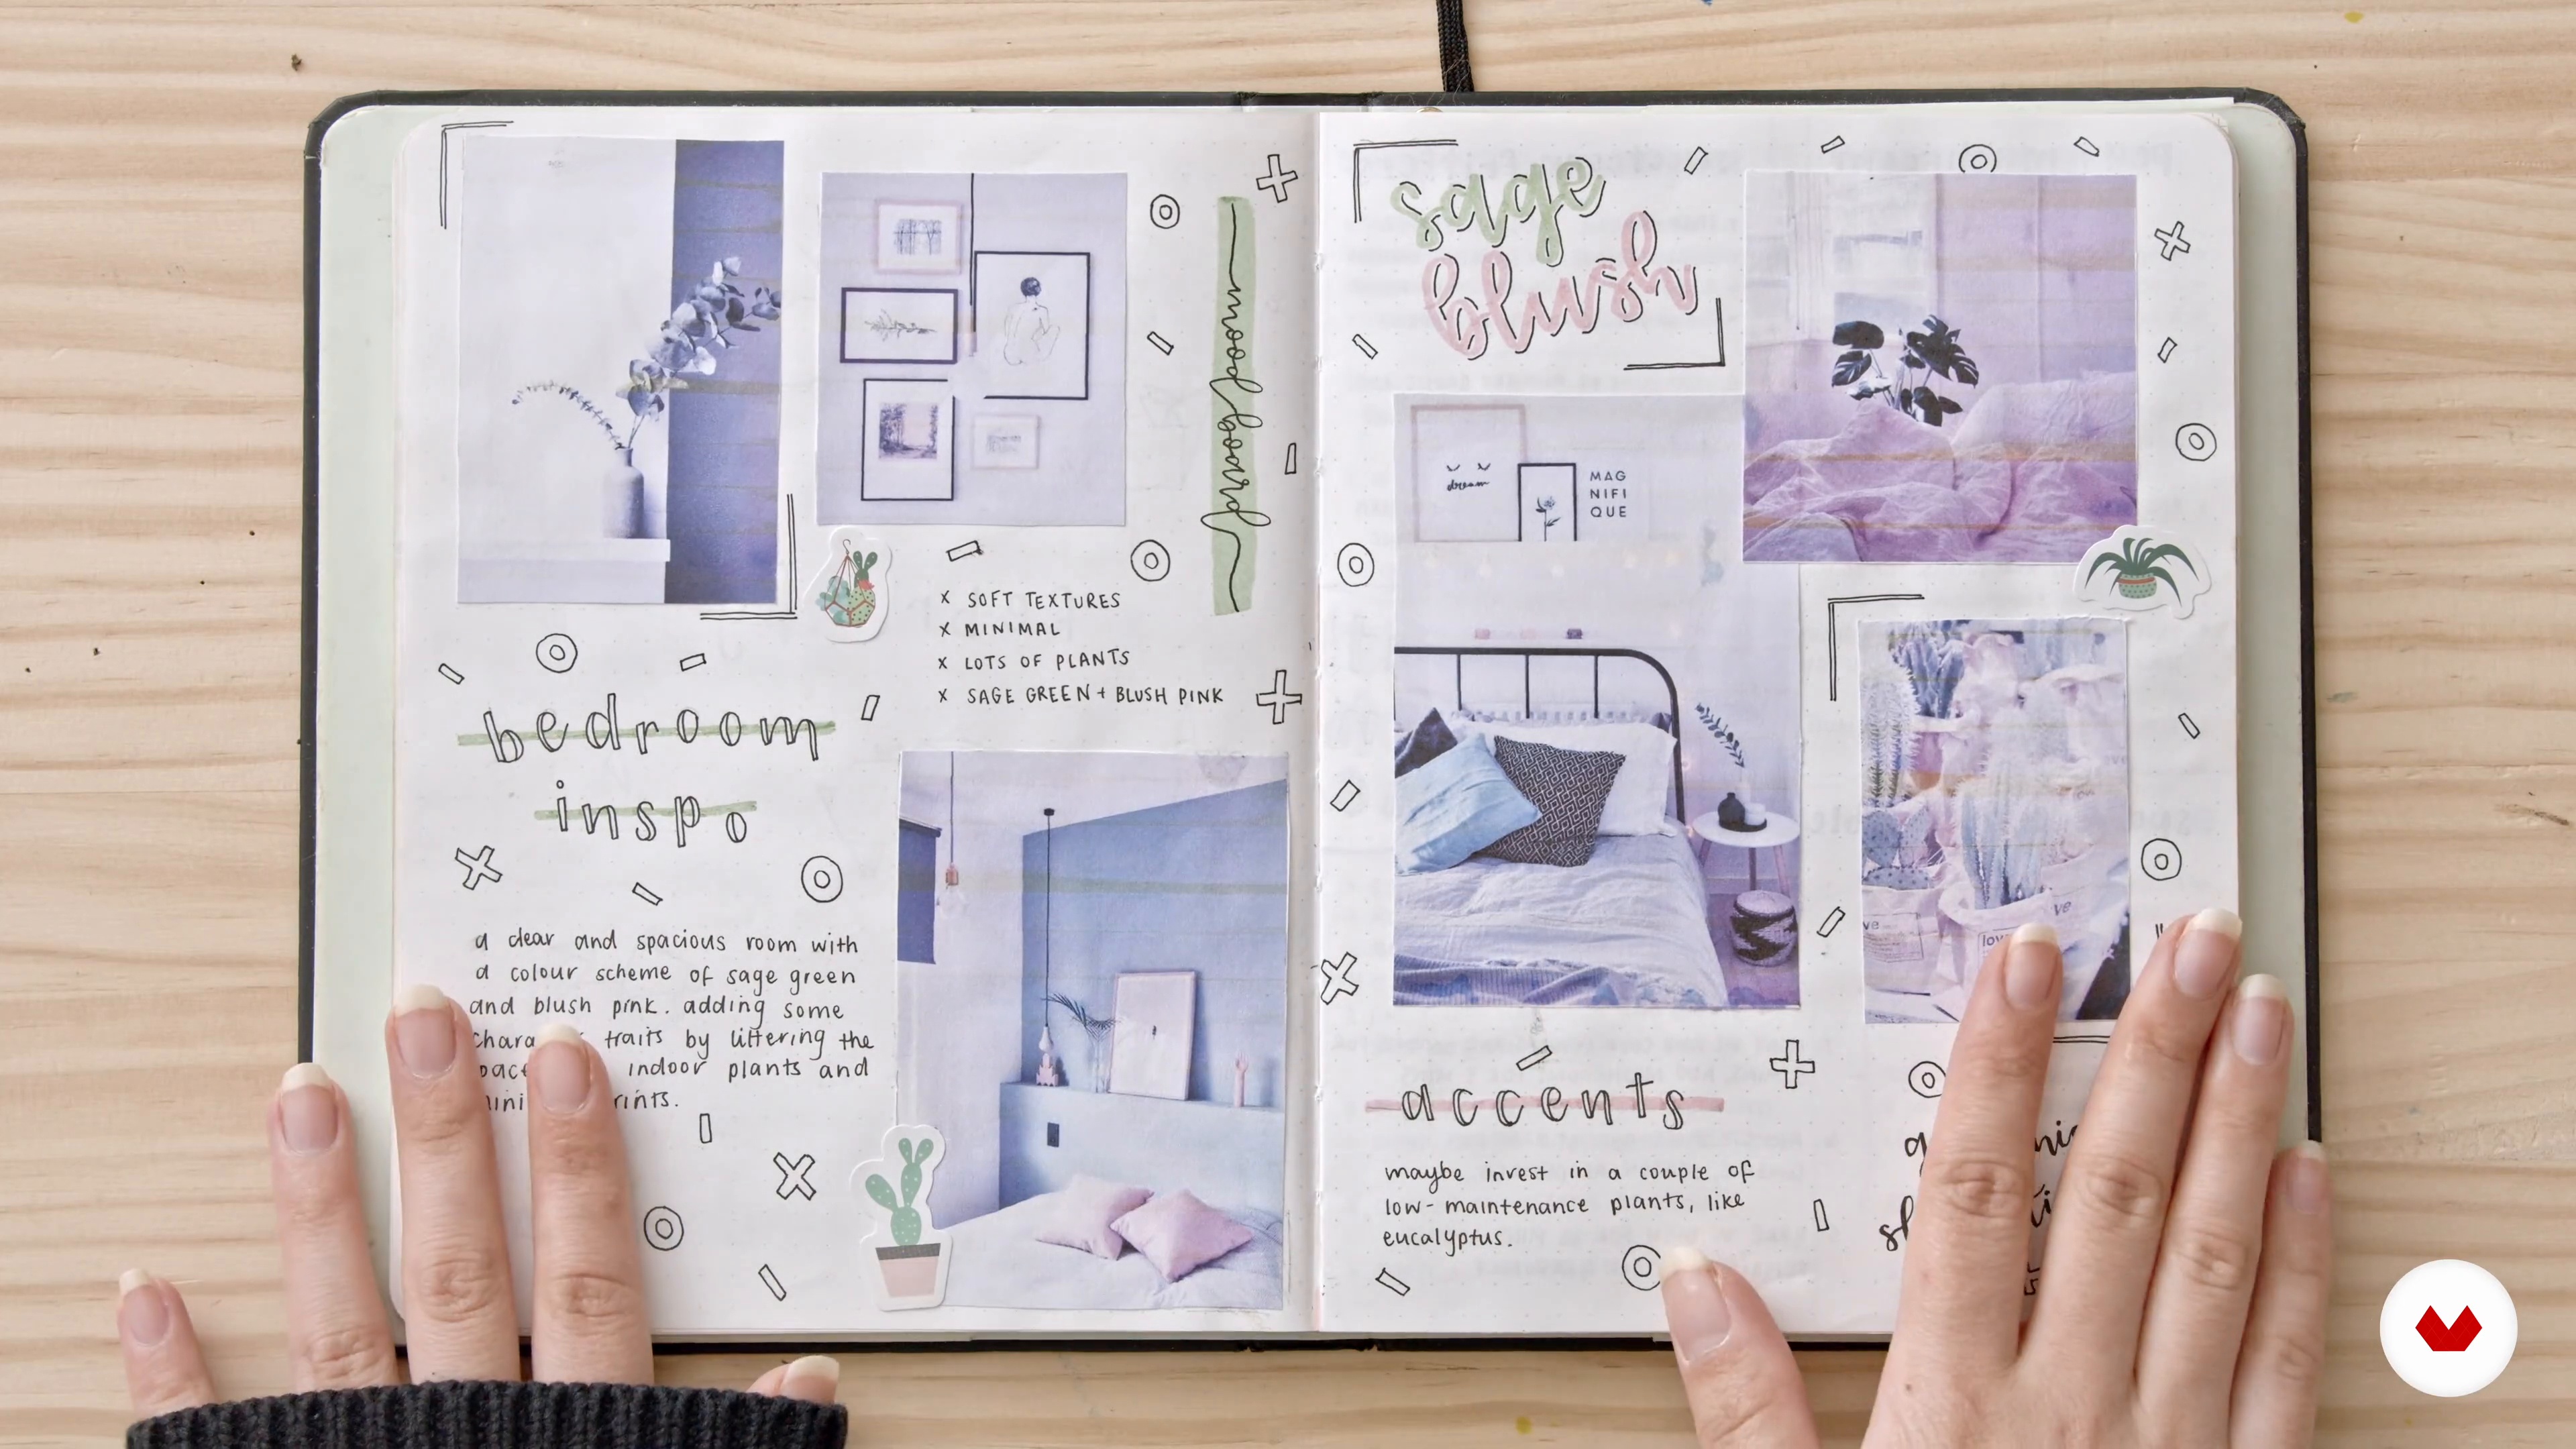 mood board
x SOFT TEXTURES
x MINIMAL
x LOTS OF PLANTS
x SAGE GREEN + BLUSH PINK
bedroom
inspo
a clear and spacious room with
a colour scheme of sage green
and blush pink. adding some
traits by littering the
indoor plants and
sage
blush
dream
MAG
NIFI
QUE
accents
maybe invest in a couple of
low-maintenance plants, like
eucalyptus.